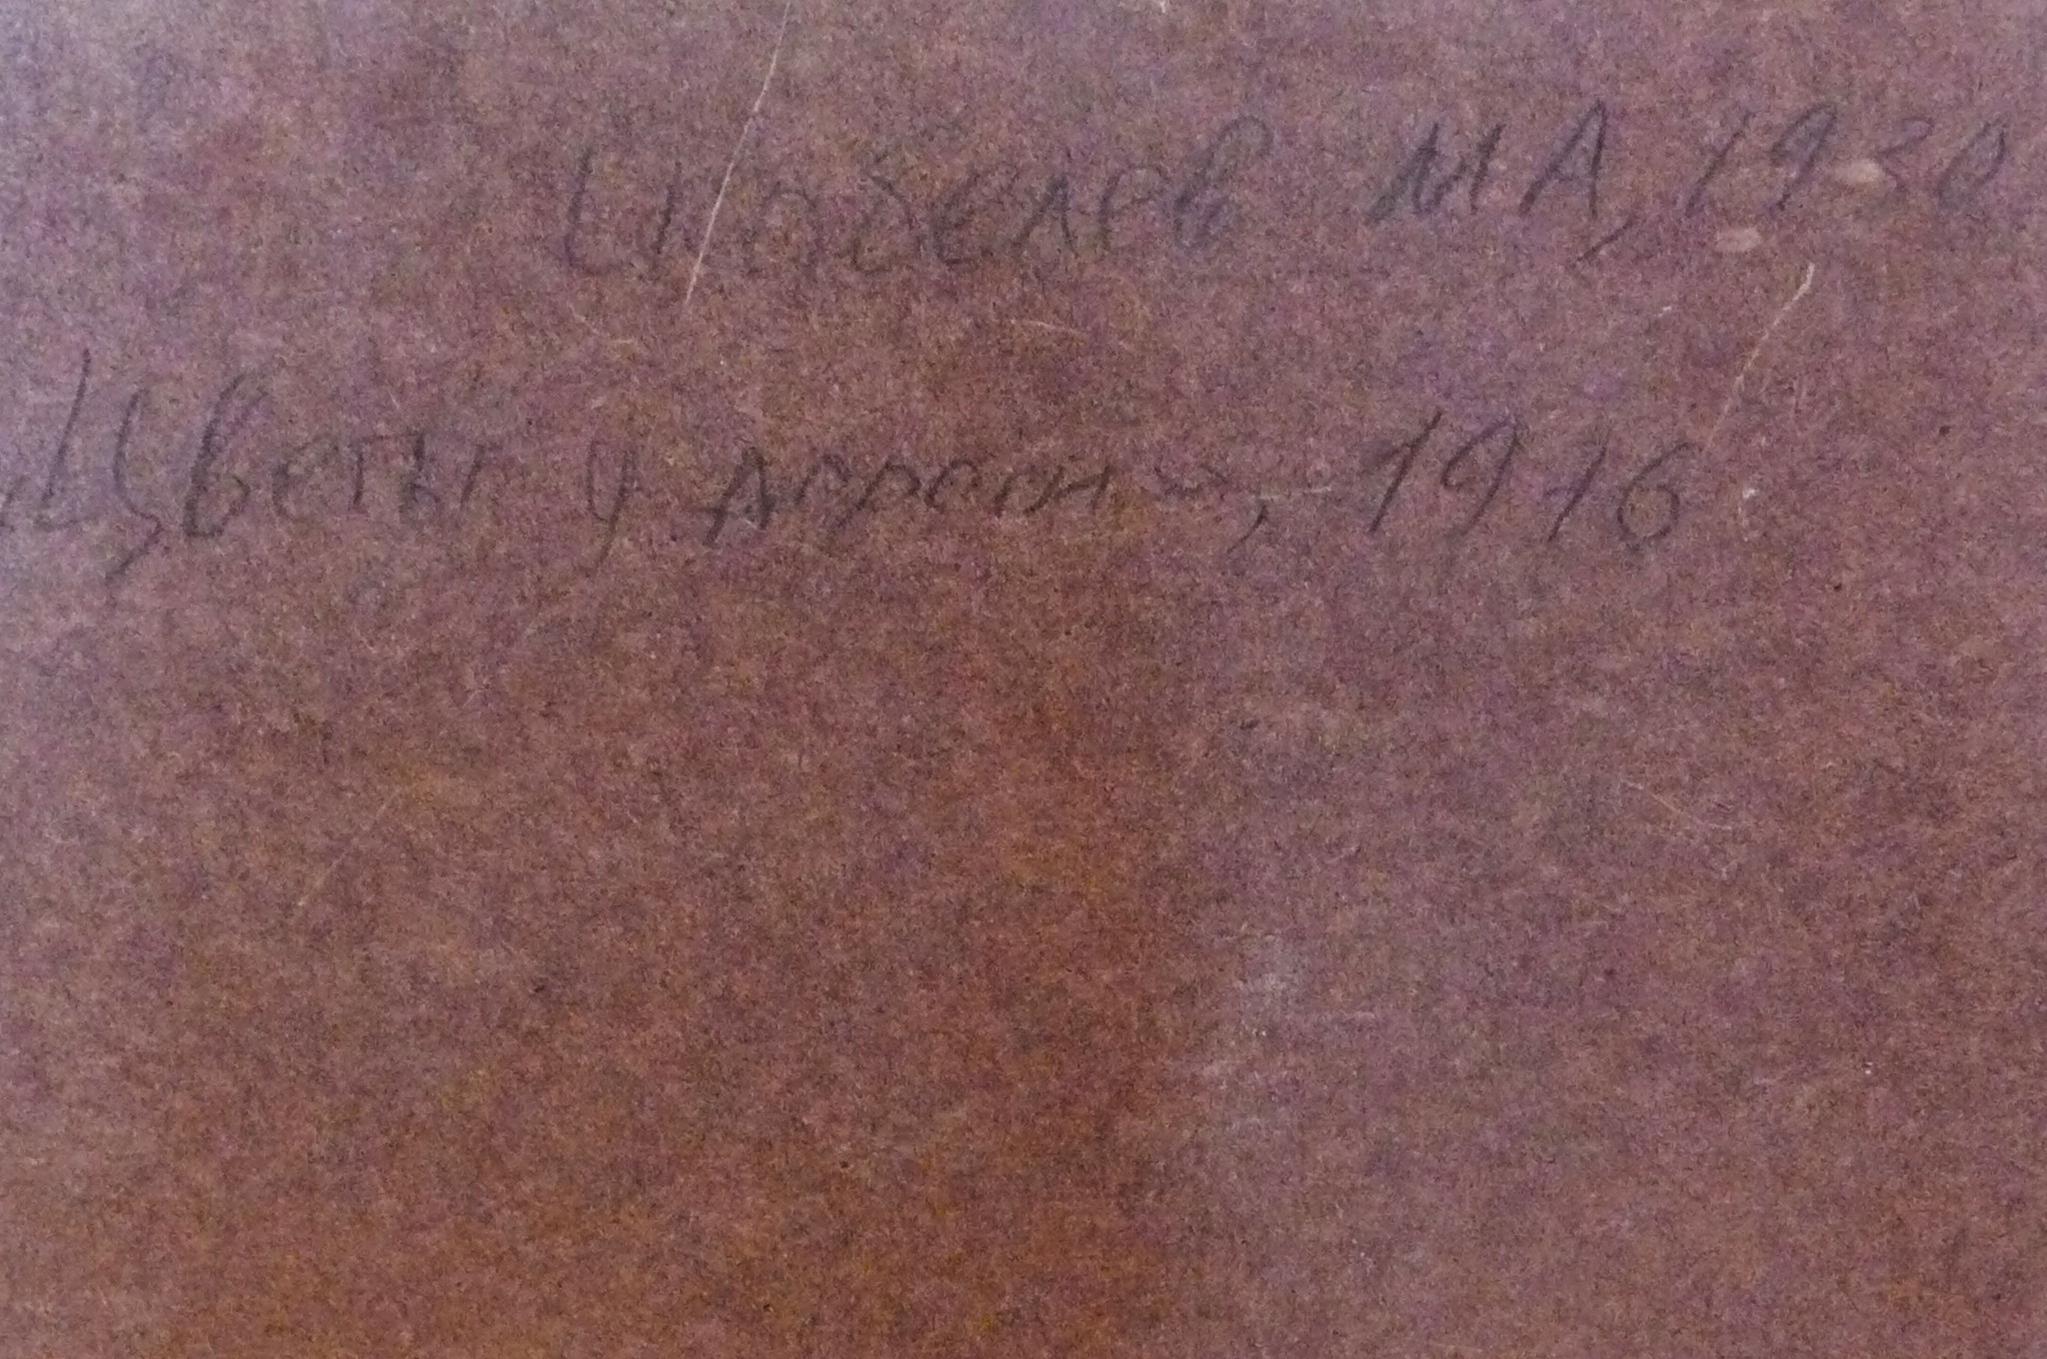 Шабелев МА, 1930
"Цветы у дороги", 1976